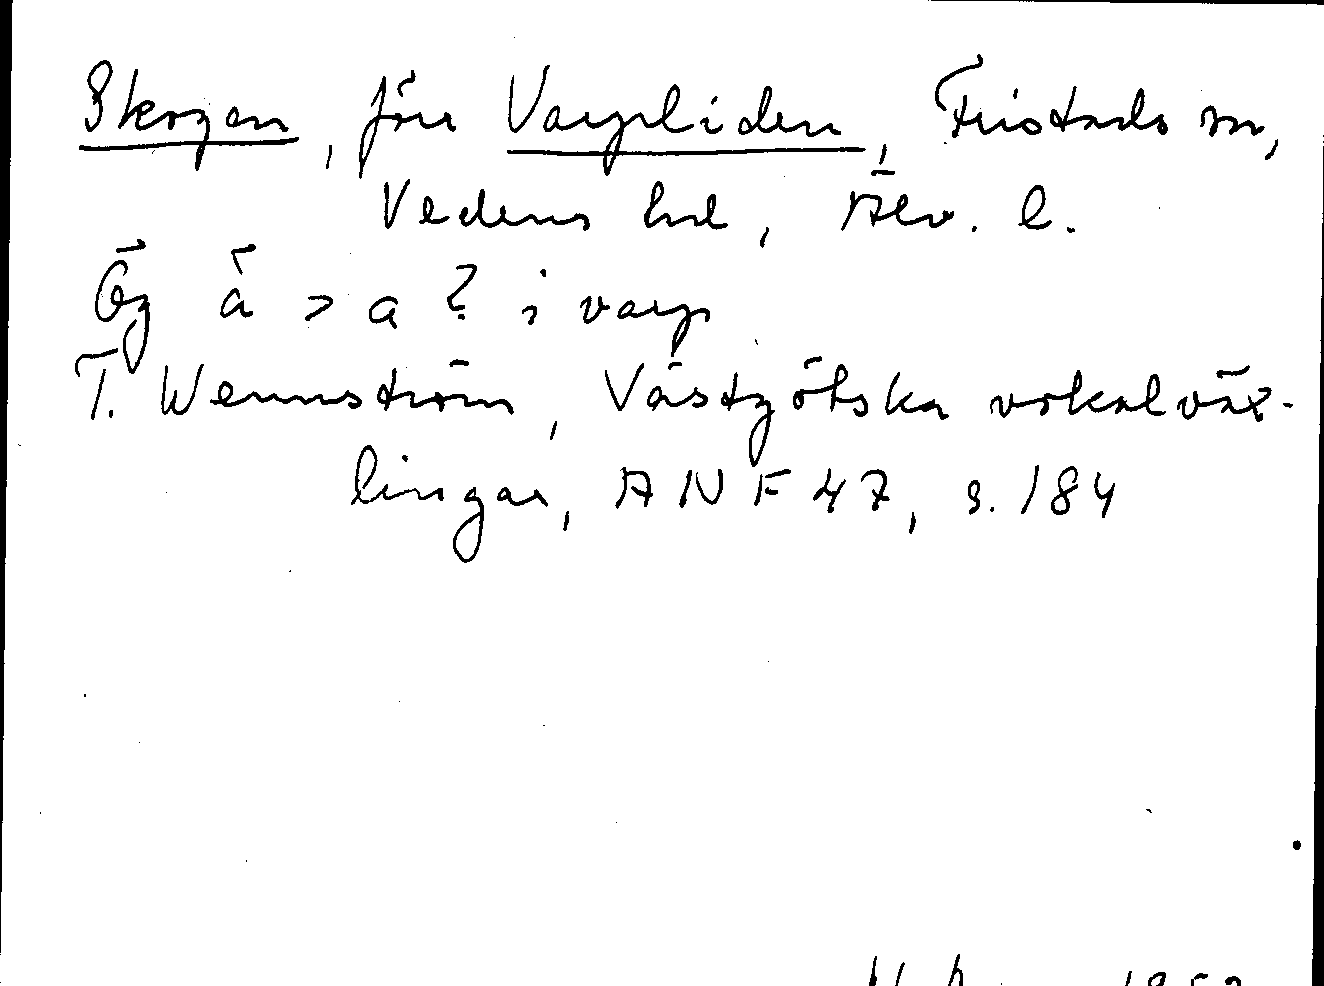 Skogen, förr Varpliden, Fristads sn,
Vedens hd, Älv. l.
Og å > a ? i varp
T. Wennström, Västgötska vokalväx-
lingar, ANF 47, s. 184